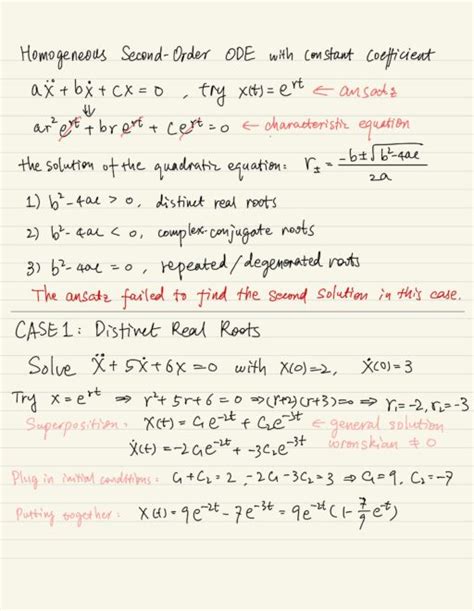 Homogeneous Second-Order ODE with Constant Coefficient
aẍ + bẋ + cx = 0 , try x(t) = e^{rt} ← ansatz
⇓
ar²e^{rt} + bre^{rt} + ce^{rt} = 0 ← characteristic equation
the solution of the quadratic equation: r± = (-b ± √(b²-4ac)) / 2a
1) b²-4ac > 0, distinct real roots
2) b²-4ac < 0, complex-conjugate roots
3) b²-4ac = 0, repeated/degenerated roots
The ansatz failed to find the second solution in this case.
CASE 1: Distinct Real Roots
Solve ẍ + 5ẋ + 6x = 0 with x(0)=2, ẋ(0)=3
Try x = e^{rt} ⇒ r²+5r+6=0 ⇒ (r+2)(r+3)=0 ⇒ r₁=-2, r₂=-3
Superposition: x(t) = c₁e^{-2t} + c₂e^{-3t} ← general solution
ẋ(t) = -2c₁e^{-2t} + -3c₂e^{-3t} wronskian ≠ 0
Plug in initial conditions: c₁+c₂=2, -2c₁-3c₂=3 ⇒ c₁=9, c₂=-7
Putting together: x(t) = 9e^{-2t} - 7e^{-3t} = 9e^{-2t}(1-7/9 e^{-t})